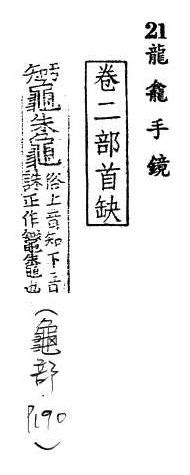 21 龍龕手鏡
卷二部首缺
俗上音知下音
誅正作鼅鼄也
(龜部.P190)